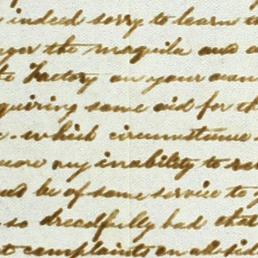 indeed sorry to learn th
ger the maquila and
the Factory on your own
quiring some aid for th
which circumstance
my inability to
be of some service to
so dreadfully bad that
complaints on all sid